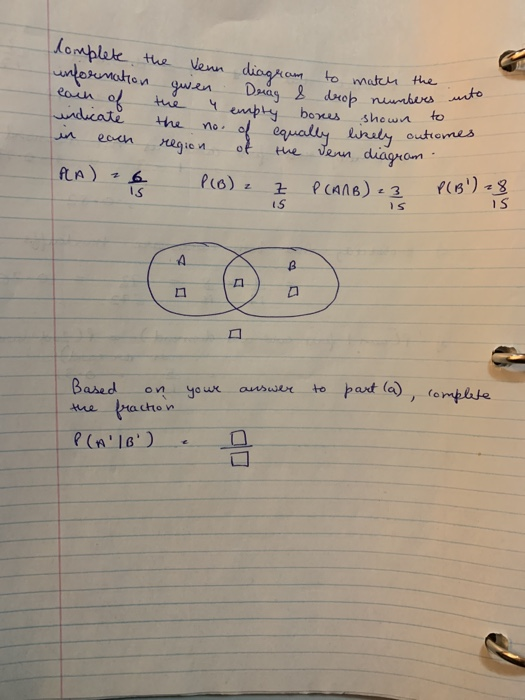 Complete the Venn diagram to match the
information given Drag & drop numbers into
each of the 4 empty boxes shown to
indicate the no. of equally likely outcomes
in each region of the venn diagram.
P(A) = 6/15 P(B) = 7/15 P(A∩B) = 3/15 P(B') = 8/15
A B
Based on your answer to part (a), complete
the fraction
P(A'|B') =